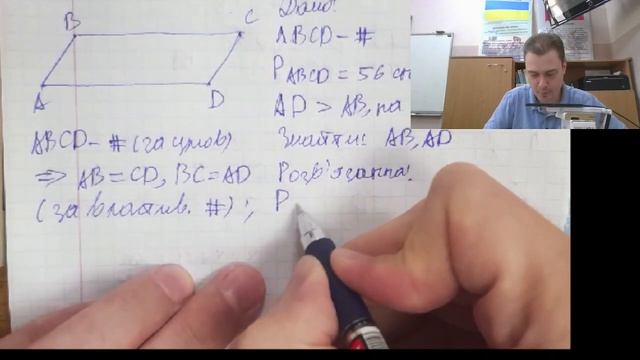 B
C
A
D
Дано:
ABCD - #
P ABCD = 56 см
AD > AB, на
Знайти: AB, AD
ABCD - # (за умов)
⇒ AB = CD, BC = AD
(за властив. #);
Розв'язання.
P